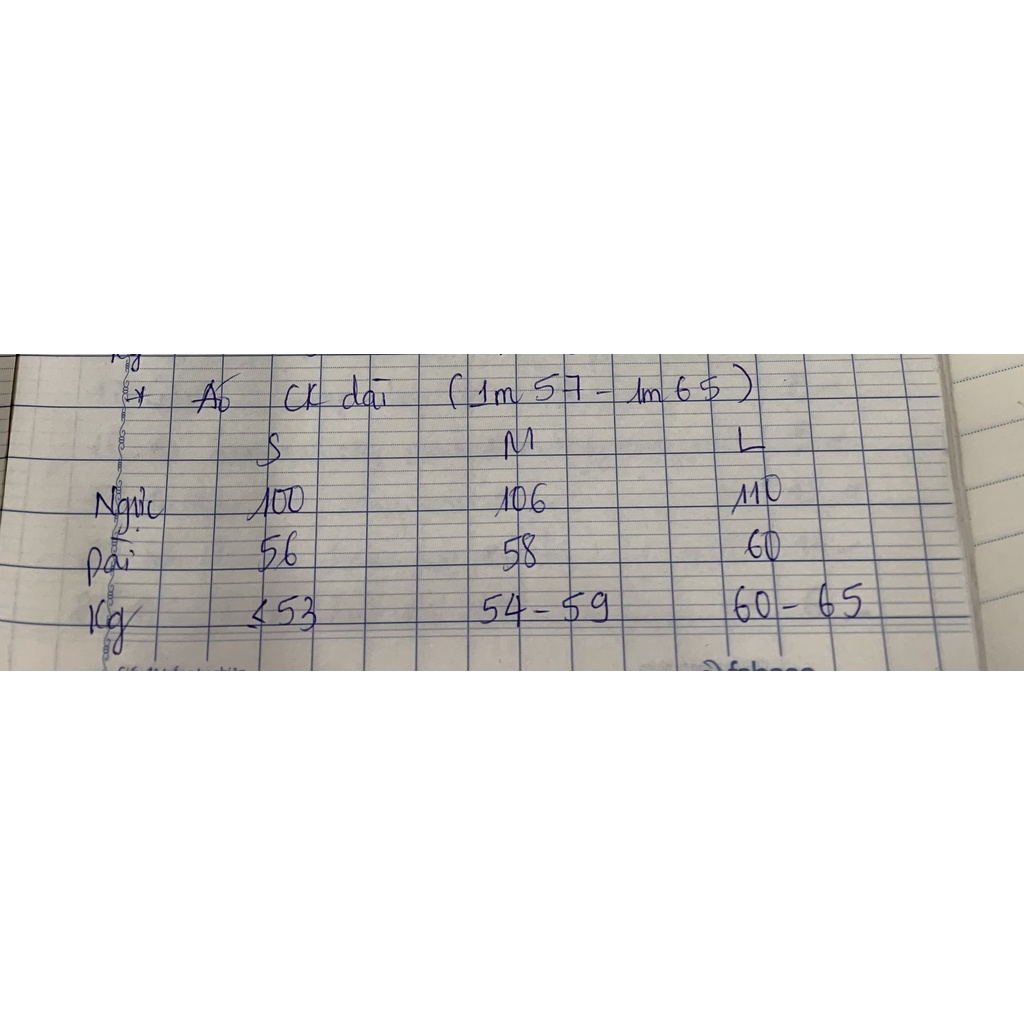 * Áo CK dài (1m57 - 1m65)
S M L
Ngực 100 106 110
Dài 56 58 60
Kg <53 54 - 59 60 - 65